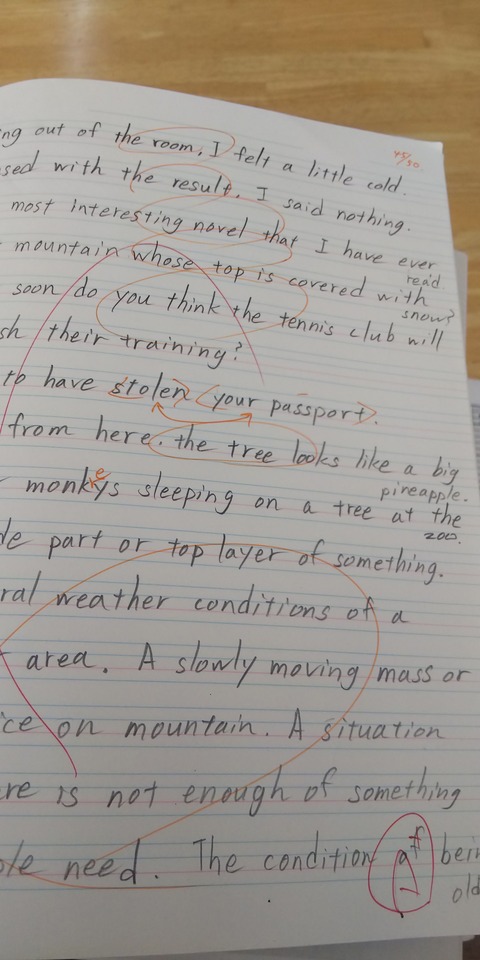 45/50
ing out of the room, I felt a little cold.
sed with the result, I said nothing.
most interesting novel that I have ever
read
mountain whose top is covered with
snow?
soon do you think the tennis club will
sh their training?
to have stolen your passport.
from here, the tree looks like a big
pineapple.
monkeys sleeping on a tree at the
zoo.
de part or top layer of something.
ral weather conditions of a
area. A slowly moving mass or
ice on mountain. A situation
ere is not enough of something
ple need. The condition of being
old